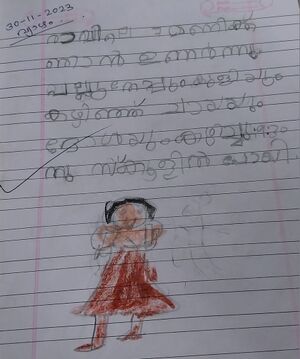 30-11-2023
വ്യാഴം
രാവിലെ ഏഴ് മണിക്ക്
ഞാൻ ഉണർന്നു
പല്ലുതേപ്പും കുളിയും
കഴിഞ്ഞ് ചായയും
ദോശയും കഴിച്ചു 9:30
നു സ്കൂളിൽ പോയി.